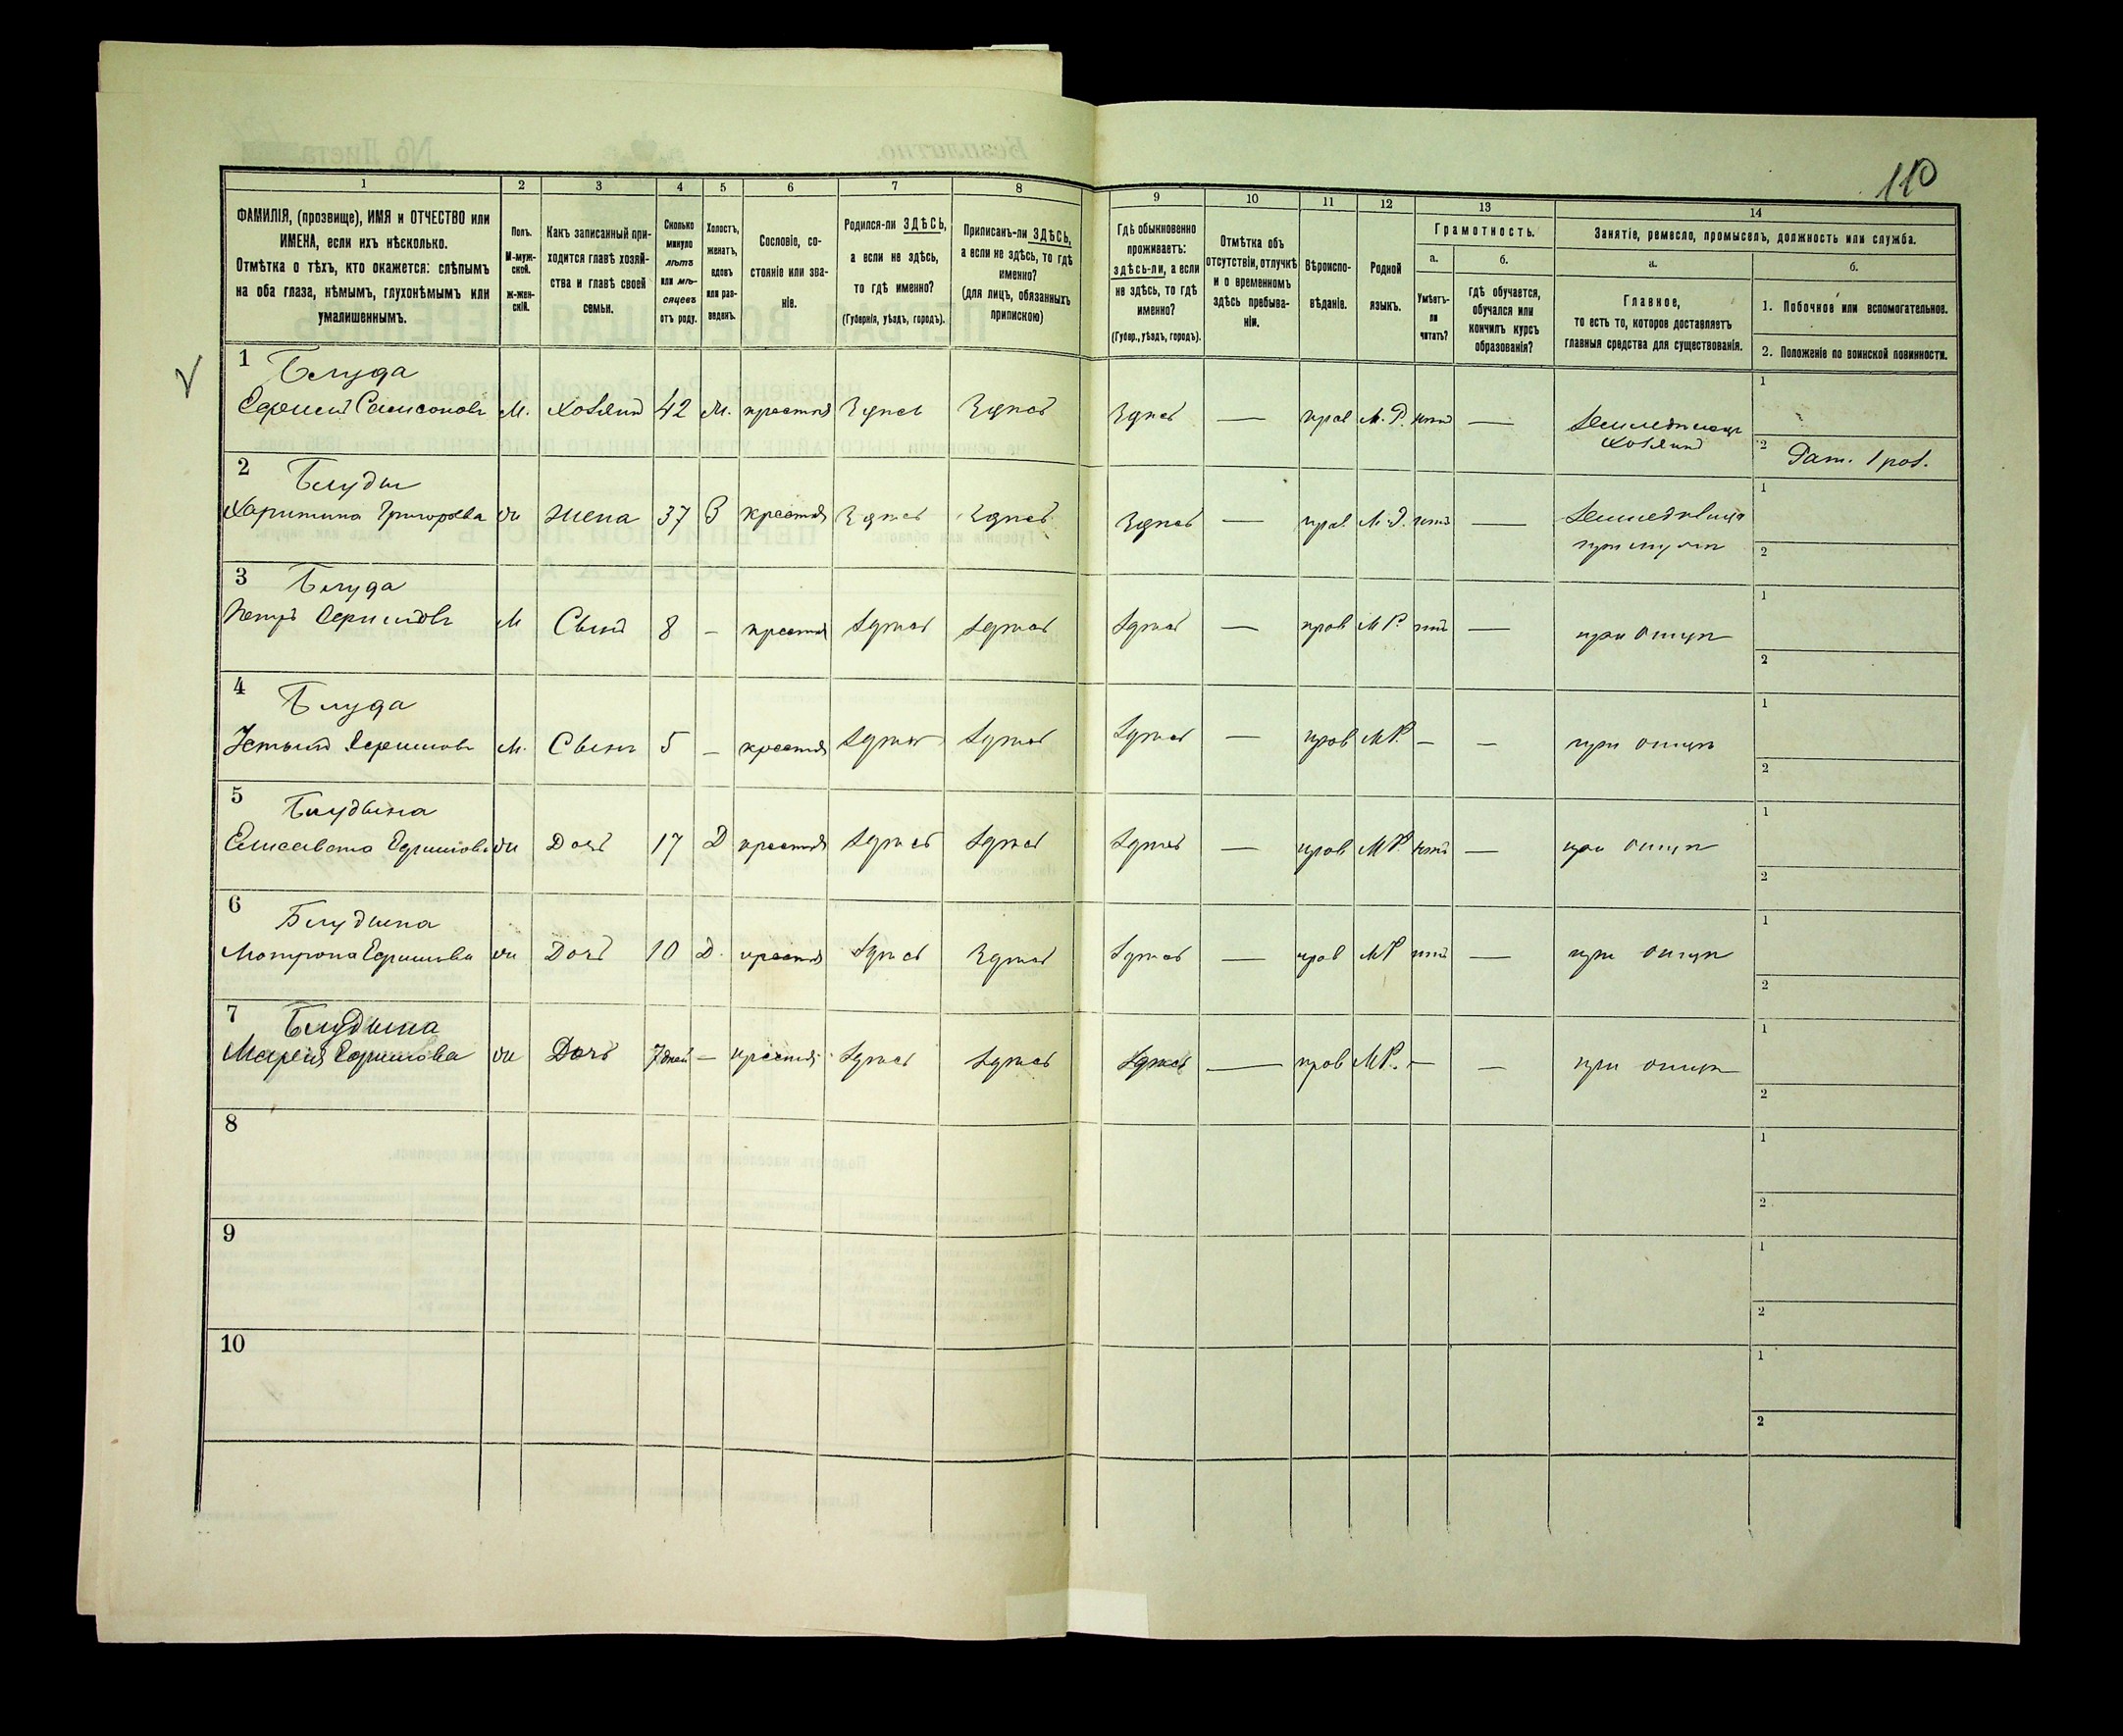 110
1 2 3 4 5 6 7 8 9 10 11 12 13 14
ФАМИЛІЯ, (прозвище), ИМЯ и ОТЧЕСТВО или
ИМЕНА, если ихъ нѣсколько.
Отмѣтка о тѣхъ, кто окажется: слѣпымъ
на оба глаза, нѣмымъ, глухонѣмымъ или
умалишеннымъ.
Полъ.
М-муж-
ской.
Ж-жен-
скій.
Какъ записанный при-
ходится главѣ хозяй-
ства и главѣ своей
семьи.
Сколько
минуло
лѣтъ
или мѣ-
сяцевъ
отъ роду.
Холостъ,
женатъ,
вдовъ
или раз-
веденъ.
Сословіе, со-
стояніе или зва-
ніе.
Родился-ли ЗДѢСЬ,
а если не здѣсь,
то гдѣ именно?
(Губернія, уѣздъ, городъ).
Приписанъ-ли ЗДѢСЬ,
а если не здѣсь, то гдѣ
именно?
(для лицъ, обязанныхъ
припискою)
Гдѣ обыкновенно
проживаетъ:
здѣсь-ли, а если
не здѣсь, то гдѣ
именно?
(Губер., уѣздъ, городъ).
Отмѣтка объ
отсутствіи, отлучкѣ
и о временномъ
здѣсь пребыва-
ніи.
Вѣроиспо-
вѣданіе.
Родной
языкъ.
Грамотность.
а.
Умѣетъ-
ли
читать?
б.
Гдѣ обучается,
обучался или
кончилъ курсъ
образованія?
Занятіе, ремесло, промыселъ, должность или служба.
а.
Главное,
то есть то, которое доставляетъ
главныя средства для существованія.
б.
1. Побочное или вспомогательное.
2. Положеніе по воинской повинности.
1 Блуда
Самсоновъ М. Хозяинъ 42 крестья Здѣсь Здѣсь Здѣсь — прав М.Р. нѣтъ —
Хозяинъ
1
2 Рат. 1 раз.
2 Блуды
Харитина Григорьева ж жена 37 З крестья Здѣсь Здѣсь Здѣсь — прав М.Р. нѣтъ —
1
2
3 Блуда
Петръ М Сынъ 8 – крестья Здѣсь Здѣсь Здѣсь — прав МР. нѣтъ — при отцѣ
1
2
4 Блуда
М. Сынъ 5 – крестья Здѣсь Здѣсь Здѣсь — прав МР. – – при отцѣ
1
2
5 Блудына
Елисавета ж Дочь 17 Д крестья Здѣсь Здѣсь Здѣсь — прав МР. нѣтъ — при отцѣ
1
2
6 Блудына
Мотрона ж Дочь 10 Д. крестья Здѣсь Здѣсь Здѣсь — прав МР нѣтъ — при отцѣ
1
2
7 Блудына
Марія ж Дочь 7 дней – крестья Здѣсь Здѣсь Здѣсь — прав МР. – – при отцѣ
1
2
8
1
2
9
1
2
10
1
2